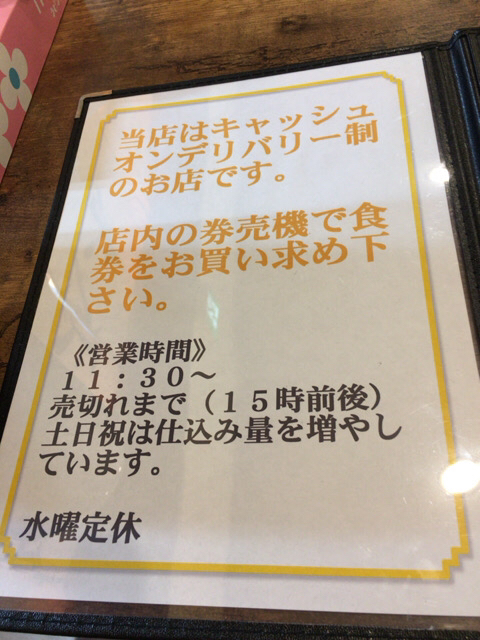 当店はキャッシュ
オンデリバリー制
のお店です。
店内の券売機で食
券をお買い求め下
さい。
《営業時間》
１１：３０～
売切れまで（１５時前後）
土日祝は仕込み量を増やし
ています。
水曜定休